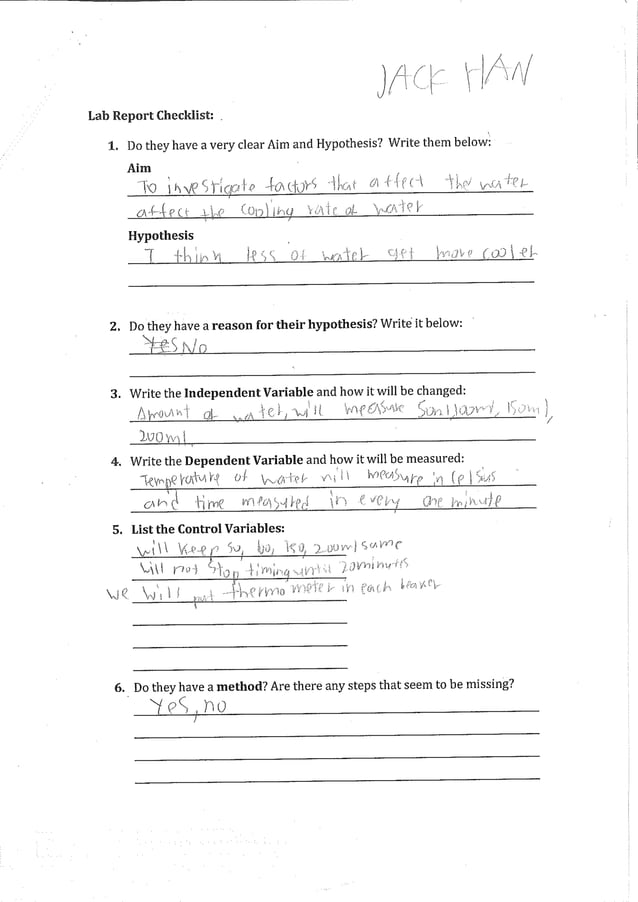 JACK HAN
Lab Report Checklist:
1. Do they have a very clear Aim and Hypothesis? Write them below:
Aim
To investigate factors that affect the water
affect the cooling rate of water
Hypothesis
I think less of water get more cooler
2. Do they have a reason for their hypothesis? Write it below:
Yes No
3. Write the Independent Variable and how it will be changed:
Amount of water, will measure 50ml 100ml, 150ml,
200ml
4. Write the Dependent Variable and how it will be measured:
Temperature of water will measure in Celsius
and time measured in every one minute
5. List the Control Variables:
will keep 50, 100, 150, 200ml same
will not stop timing until 20minutes
we will put thermometer in each beaker
6. Do they have a method? Are there any steps that seem to be missing?
Yes, no